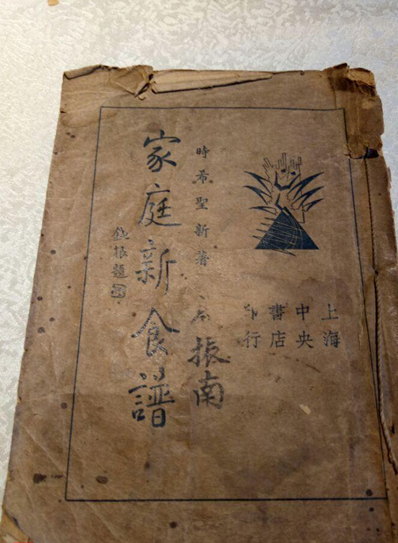 上海
中央
書店
印行
時希聖新著
振南
家庭新食譜
鈍根題